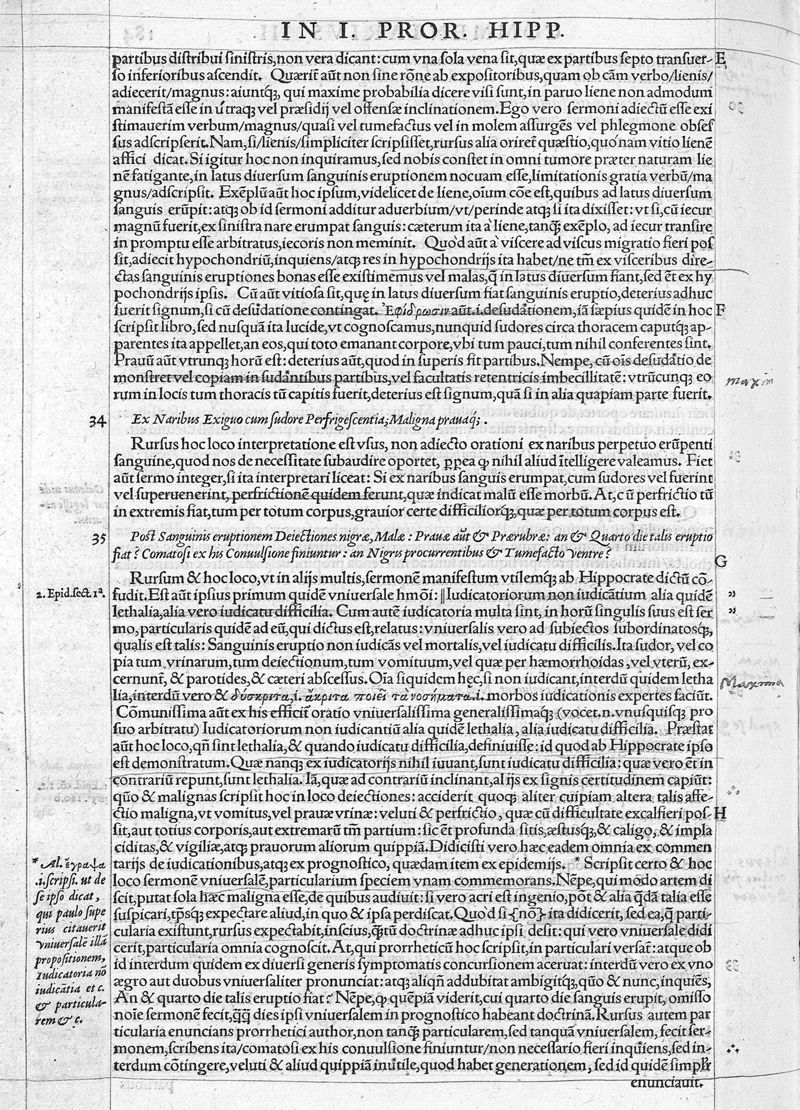 IN I. PROR. HIPP.
partibus distribui sinistris, non vera dicant: cum vna sola vena sit, quæ ex partibus septo transuer- E
so inferioribus ascendit. Quærit̃ aũt non sine rõne ab expositoribus, quam ob cãm verbo/lienis/
adiecerit/magnus: aiuntq;, qui maxime probabilia dicere visi sunt, in paruo liene non admodum
manifestã esse in vtraq; vel præsidij vel offensæ inclinationem. Ego vero sermoni adiectũ esse exi
stimauerim verbum/magnus/quasi vel tumefactus vel in molem assurgẽs vel phlegmone obses
sus adscripserit. Nam, si/lienis/simpliciter scripsisset, rursus alia orireť quæstio, quo nam vitio lienẽ
affici dicat. Si igitur hoc non inquiramus, sed nobis constet in omni tumore præter naturam lie
nẽ fatigante, in latus diuersum sanguinis eruptionem nocuam esse, limitationis gratia verbũ/ma
gnus/adscripsit. Exẽplũ aũt hoc ipsum, videlicet de liene, oĩum cõe est, quibus ad latus diuersum
sanguis erũpit: atq; ob id sermoni additur aduerbium/vt/perinde atq; si ita dixisset: vt si, cũ iecur
magnũ fuerit, ex sinistra nare erumpat sanguis: cæterum ita a liene, tanq̃ exẽplo, ad iecur transire
in promptu esse arbitratus, iecoris non meminit. Quod aũt a viscere ad viscus migratio fieri pos
sit, adiecit hypochondriũ, inquiens/atq; res in hypochondrijs ita habet/ne tm̃ ex visceribus dire-
ctas sanguinis eruptiones bonas esse existimemus vel malas, q̃ in latus diuersum fiant, sed ẽt ex hy
pochondrijs ipsis. Cũ aũt vitiosa sit, quę in latus diuersum fiat sanguinis eruptio, deterius adhuc
fuerit signum, si cũ desudatione contingat. Ἐφίδρωσιν aũt. i. desudationem, iã sæpius quidẽ in hoc F
scripsit libro, sed nusquã ita lucide, vt cognoscamus, nunquid sudores circa thoracem caputq; ap-
parentes ita appellet, an eos, qui toto emanant corpore, vbi tum pauci, tum nihil conferentes sint.
Prauũ aũt vtrunq; horũ est: deterius aũt, quod in superis fit partibus. Nempe, cũ oĩs desudatio de
monstret vel copiam in sudantibus partibus, vel facultatis retentricis imbecillitatẽ: vtrũcunq; eo
rum in locis tum thoracis tũ capitis fuerit, deterius est signum, quã si in alia quapiam parte fuerit.
maxim
34 Ex Naribus Exiguo cum sudore Perfrigescentia; Maligna prauaq;.
Rursus hoc loco interpretatione est vsus, non adiecto orationi ex naribus perpetuo erũpenti
sanguine, quod nos de necessitate subaudire oportet, ꝓpea ꝙ nihil aliud ĩtelligere valeamus. Fiet
aũt sermo integer, si ita interpretari liceat: Si ex naribus sanguis erumpat, cum sudores vel fuerint
vel superuenerint, perfrictionẽ quidem ferunt, quæ indicat malũ esse morbũ. At, cũ perfrictio tũ
in extremis fiat, tum per totum corpus, grauior certe difficiliorq;, quæ per totum corpus est.
35 Post Sanguinis eruptionem Deiectiones nigræ, Malæ: Prauæ aũt & Prærubræ: an & Quarto die talis eruptio
fiat? Comatosi ex his Conuulsione finiuntur: an Nigris procurrentibus & Tumefacto ventre?
G
Rursum & hoc loco, vt in alijs multis, sermonẽ manifestum vtilemq; ab Hippocrate dictũ cõ-
2. Epid. sect. 1ª. fudit. Est aũt ipsius primum quidẽ vniuersale hm̃oi: Iudicatoriorum non iudicãtium alia quidẽ
lethalia, alia vero iudicatu difficilia. Cum autẽ iudicatoria multa sint, in horũ singulis suus est ser
mo, particularis quidẽ ad eũ, qui dictus est, relatus: vniuersalis vero ad subiectos subordinatosq;,
qualis est talis: Sanguinis eruptio non iudicãs vel mortalis, vel iudicatu difficilis. Ita sudor, vel co
pia tum vrinarum, tum deiectionum, tum vomituum, vel quæ per hæmorrhoidas, vel vterũ, ex-
cernunt̃, & parotides, & cæteri abscessus. Oĩa siquidem hęc, si non iudicant, interdũ quidem letha
lia, interdũ vero & δύσκριτα, i. ἄκριτα ποιεῖ τὰ νοσήματα. i. morbos iudicationis expertes faciũt. Maxima
Cõmunissima aũt ex his efficit̃ oratio vniuersalissima generalissimaq; (vocet. n. vnusquisq; pro
suo arbitratu) Iudicatoriorum non iudicantiũ alia quidẽ lethalia, alia iudicatu difficilia. Præstat
aũt hoc loco, qñ sint lethalia, & quando iudicatu difficilia, definiuisse: id quod ab Hippocrate ipso
est demonstratum. Quæ nanq; ex iudicatorijs nihil iuuant, sunt iudicatu difficilia: quæ vero ẽt in
contrariũ repunt, sunt lethalia. Iã, quæ ad contrariũ inclinant, alijs ex signis certitudinem capiũt:
quõ & malignas scripsit hoc in loco deiectiones: acciderit quoq; aliter cuipiam altera talis affe-
ctio maligna, vt vomitus, vel prauæ vrinæ: veluti & perfrictio, quæ cũ difficultate excalfieri pos- H
sit, aut totius corporis, aut extremarũ tm̃ partium: sic ẽt profunda sitis, æstusq;, & caligo, & impla
ciditas, & vigiliæ, atq; prauorum aliorum quippiã. Didicisti vero hæc eadem omnia ex commen
tarijs de iudicationibus, atq; ex prognostico, quædam item ex epidemijs. * Scripsit certo & hoc
loco sermonẽ vniuersalẽ, particularium speciem vnam commemorans. Nẽpe, qui modo artem di
scit, putat sola hæc maligna esse, de quibus audiuit: si vero acri est ingenio, põt & alia q̃dã talia esse
suspicari, tp̃sq; expectare aliud, in quo & ipsa perdiscat. Quod si {nõ} ita didicerit, sed ea, q̃ parti-
cularia existunt, rursus expectabit, insciꝰ, q̃tũ doctrinæ adhuc ipsi desit: qui vero vniuersale didi
cerit, particularia omnia cognoscit. At, qui prorrheticũ hoc scripsit, in particulari versať: atque ob
id interdum quidem ex diuersi generis symptomatis concursionem aceruat: interdũ vero ex vno
ægro aut duobus vniuersaliter pronunciat: atq; aliqñ addubitat ambigitq;, quõ & nunc, inquiẽs,
An & quarto die talis eruptio fiat? Nẽpe, ꝙ quẽpiã viderit, cui quarto die sanguis erupit, omisso
noĩe sermonẽ fecit, q̃q̃ dies ipsi vniuersalem in prognostico habeant doctrinã. Rursus autem par
ticularia enuncians prorrhetici author, non tanq̃ particularem, sed tanquã vniuersalem, fecit ser-
monem, scribens ita/comatosi ex his conuulsione finiuntur/non necessario fieri inquiens, sed in-
terdum cõtingere, veluti & aliud quippiã inutile, quod habet generationem, sed id quidẽ simplr̃
enunciauit.
* Al. ἔγραψα
.i. scripsi. ut de
se ipso dicat,
qui paulo supe
rius citauerit
vniuersalẽ illã
propositionem,
Iudicatoria nõ
iudicãtia et c.
& particula-
rem & c.